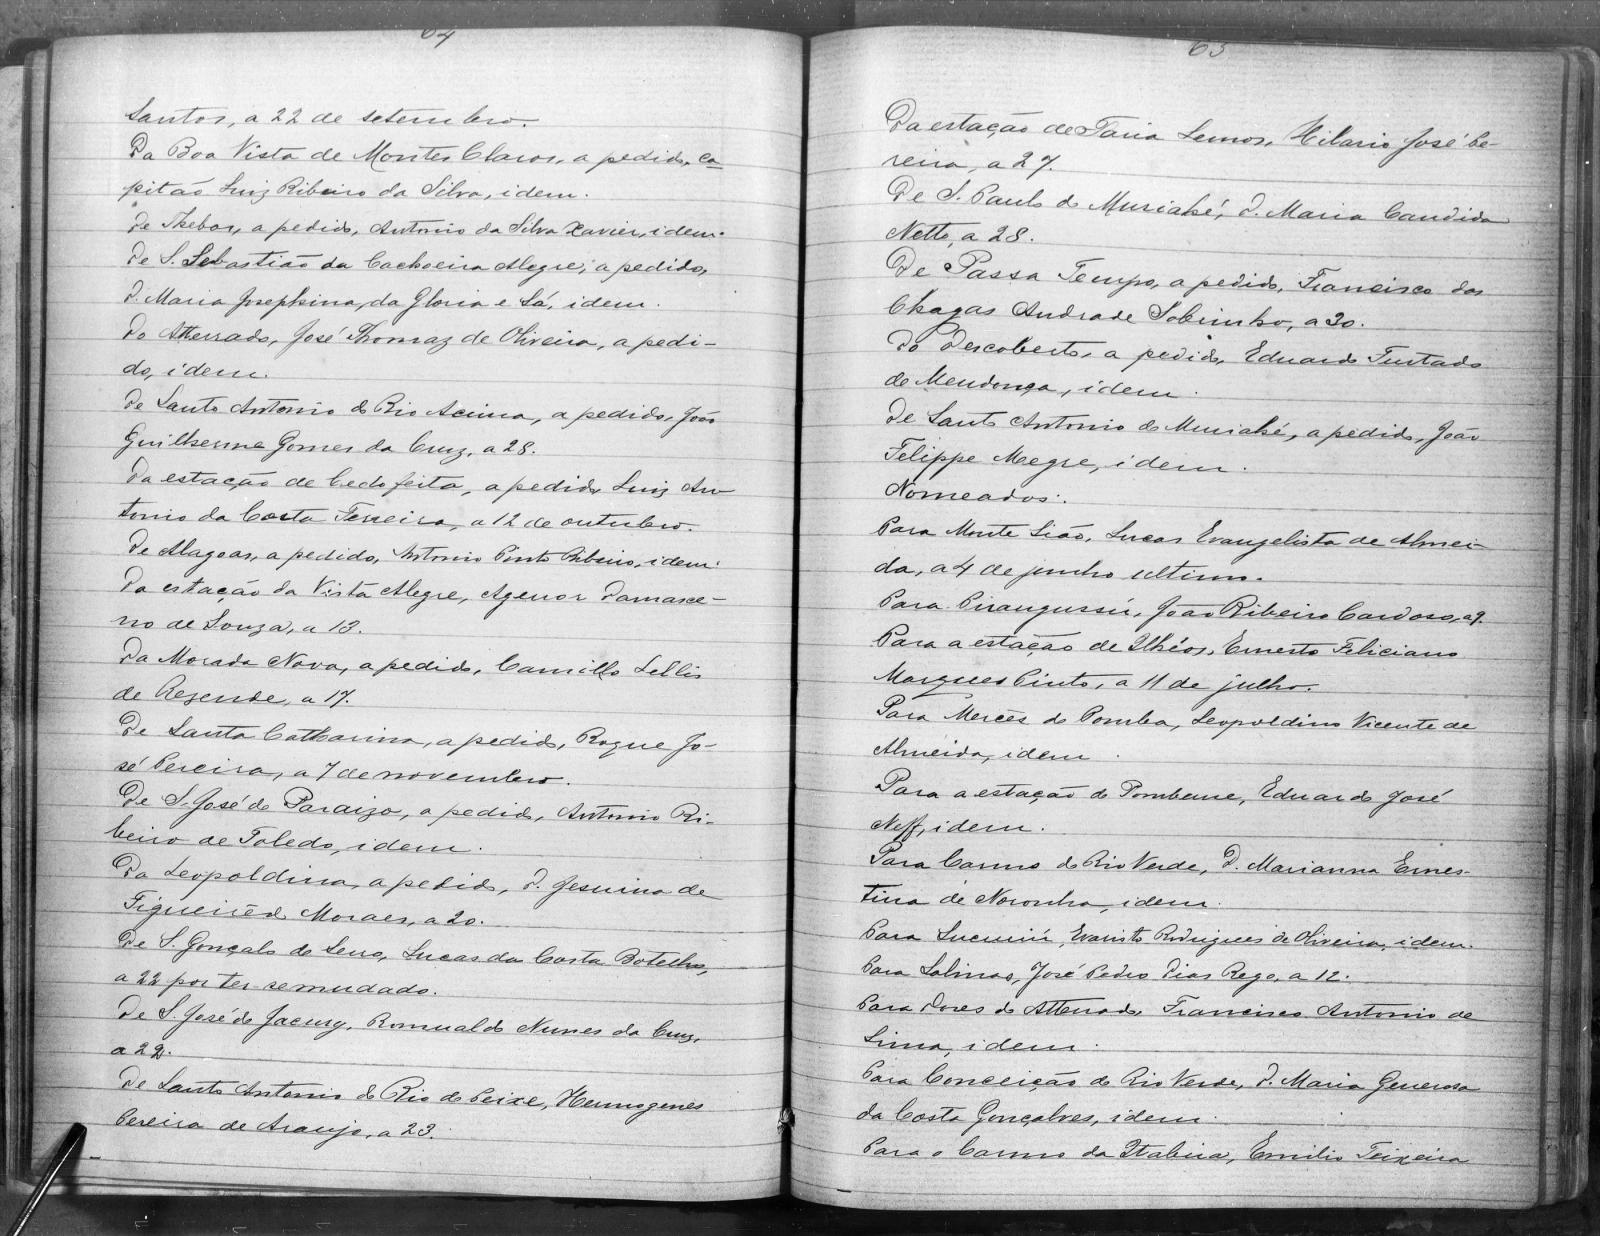 64
Santos, a 22 de setembro.
Da Boa Vista de Montes Claros, a pedido, ca-
pitão Luiz Ribeiro da Silva, idem.
De Thebas, a pedido, Antonio da Silva Xavier, idem.
De S. Sebastião da Cachoeira Alegre, a pedido,
D. Maria Josephina da Gloria e Sá, idem.
Do Atterrado, José Thomaz de Oliveira, a pedi-
do, idem.
De Santo Antonio do Rio Acima, a pedido, João
Guilherme Gomes da Cruz, a 28.
Da estação de Cedofeita, a pedido, Luiz An-
tonio da Costa Ferreira, a 12 de outubro.
De Alagoas, a pedido, Antonio Pinto Ribeiro, idem.
Da estação da Vista Alegre, Agenor Damasce-
no de Souza, a 13.
Da Morada Nova, a pedido, Camillo Lellis
de Rezende, a 17.
De Santa Catharina, a pedido, Roque Jo-
sé Pereira, a 7 de novembro.
De S. José do Paraizo, a pedido, Antonio Ri-
beiro de Toledo, idem.
Da Leopoldina, a pedido, D. Jesuina de
Figueirêdo Moraes, a 20.
De S. Gonçalo do Serro, Lucas da Costa Botelho,
a 22 por ter-se mudado.
De S. José do Jacury, Romualdo Nunes da Cruz,
a 22.
De Santo Antonio do Rio do Peixe, Hermogenes
Pereira de Araujo, a 23.
63
Da estação de Faria Lemos, Hilario José Pe-
reira, a 27.
De S. Paulo do Muriahé, D. Maria Candida
Netto, a 28.
De Passa Tempo, a pedido, Francisco das
Chagas Andrade Sobrinho, a 30.
Do Descoberto, a pedido, Eduardo Furtado
de Mendonça, idem.
De Santo Antonio do Muriahé, a pedido, João
Filippe Megre, idem.
Nomeados:
Para Monte Sião, Lucas Evangelista de Almei-
da, a 4 de junho ultimo.
Para Pirangussú, João Ribeiro Cardoso, a 9.
Para a estação de Ilhéos, Ernesto Feliciano
Marques Pinto, a 11 de julho.
Para Mercês do Pomba, Leopoldino Vicente de
Almeida, idem.
Para a estação do Pombeue, Eduardo José
Neff, idem.
Para Carmo do Rio Verde, D. Marianna Ernes-
tina de Noronha, idem.
Para Sucuriú, Evaristo Rodrigues de Oliveira, idem.
Para Salinas, José Pedro Dias Rego, a 12.
Para Dores do Atterrado, Francisco Antonio de
Lima, idem.
Para Conceição do Rio Verde, D. Maria Generosa
da Costa Gonçalves, idem.
Para o Carmo da Itabira, Emilio Teixeira